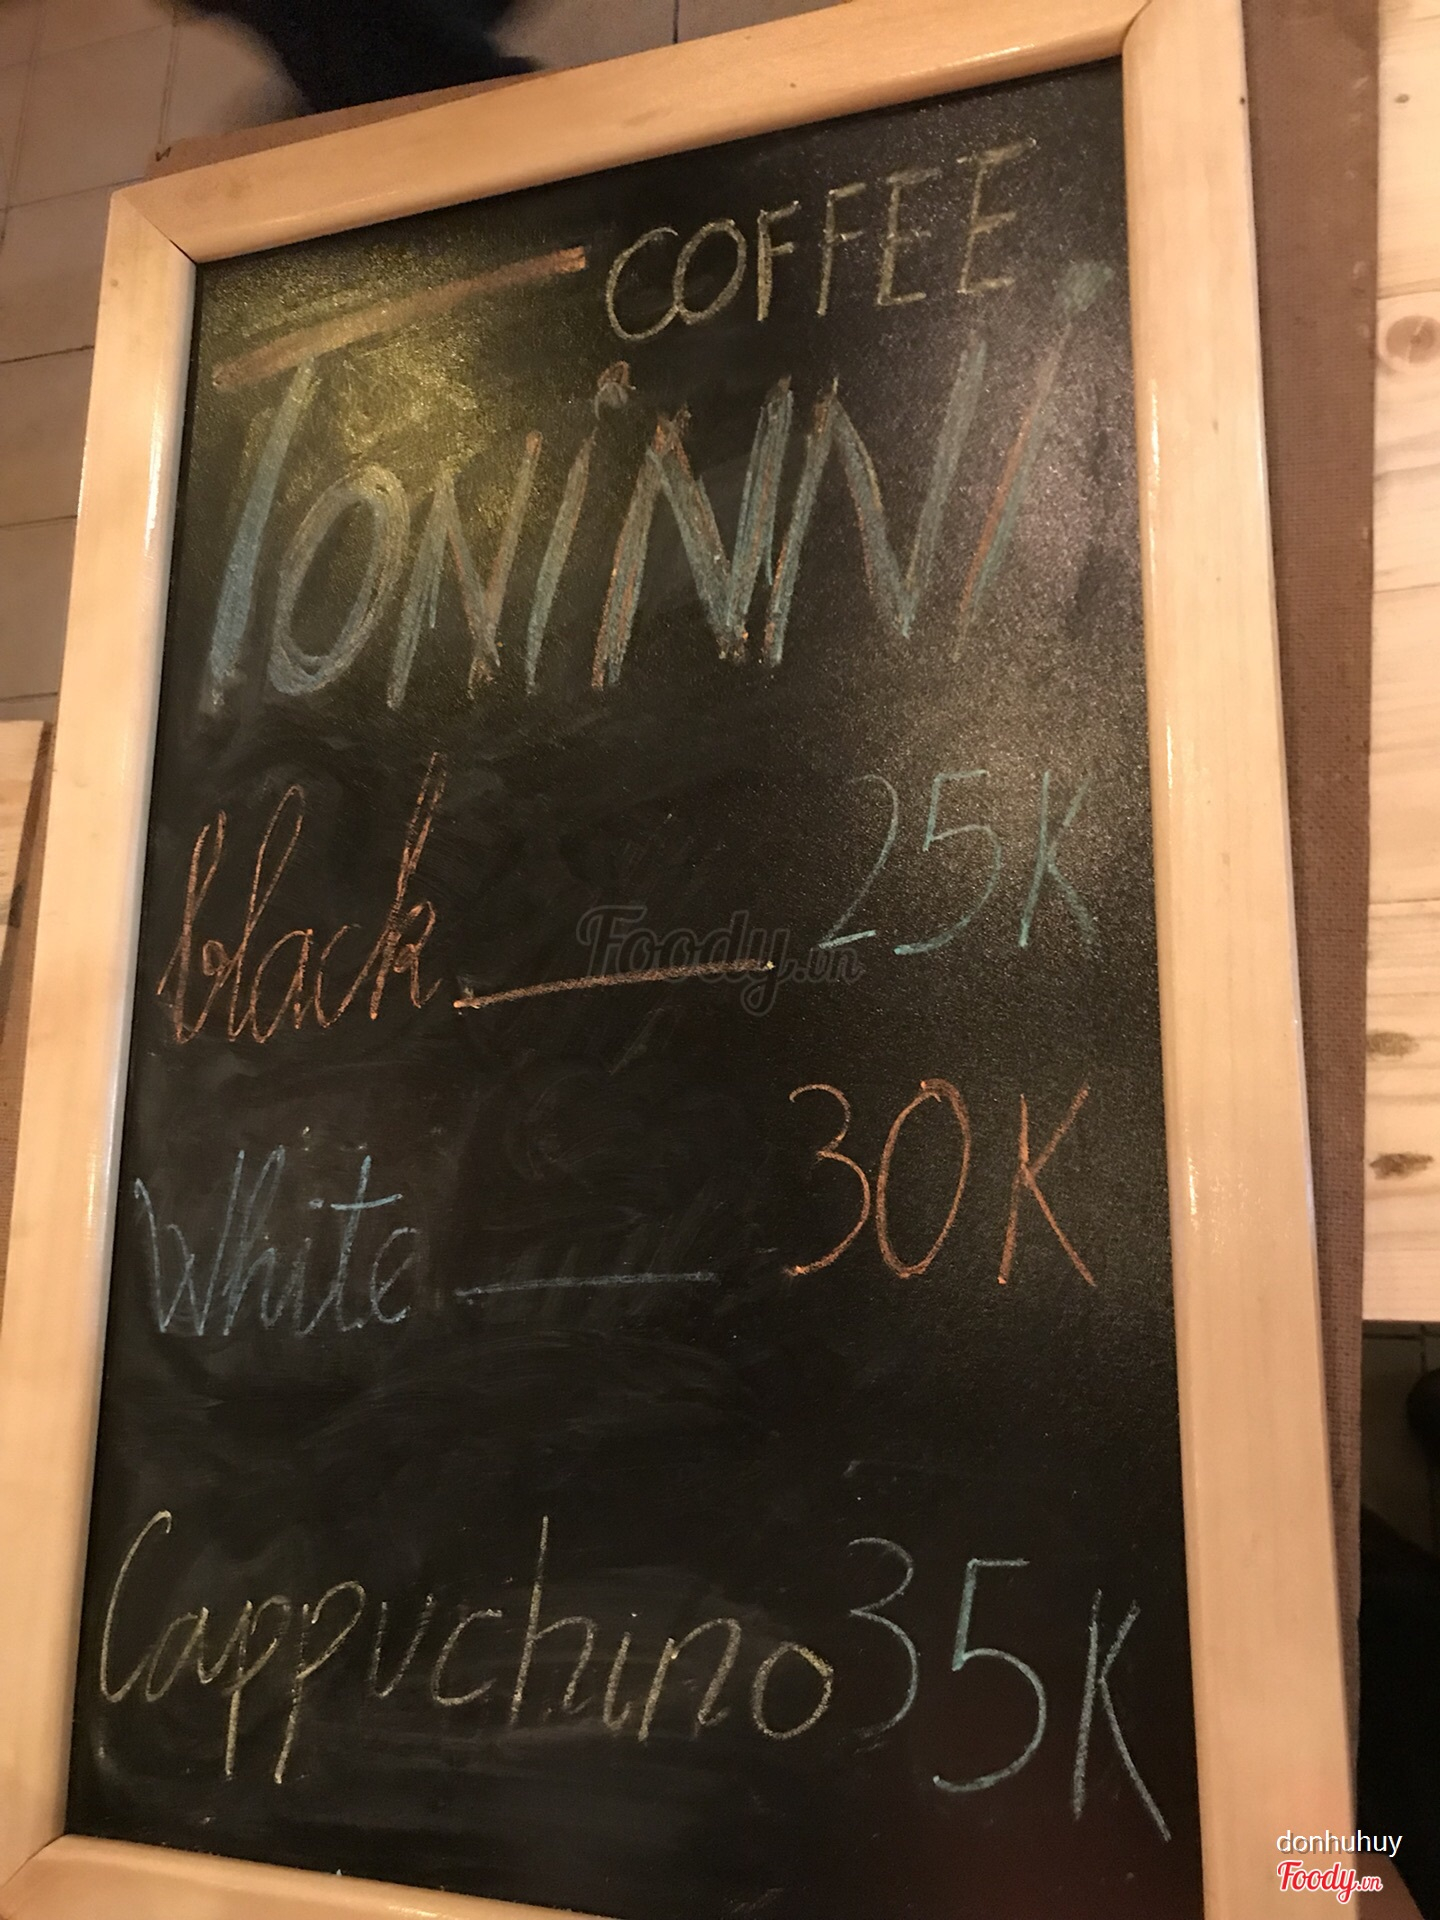 COFFEE
TONiNNI
black 25K
Foody.vn
White 30K
Cappuchino 35K
donhuhuy
Foody.vn